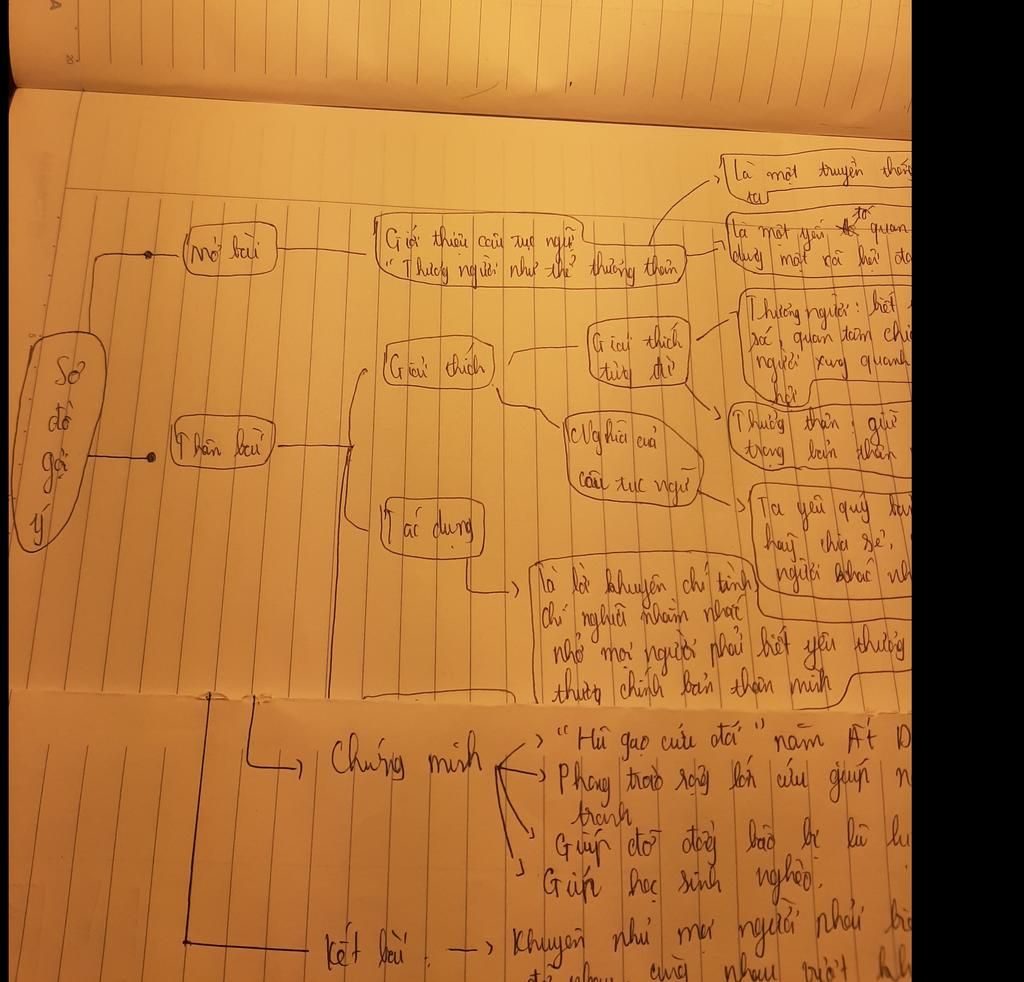 Sơ
đồ
gợi
ý
Mở bài
Giới thiệu câu tục ngữ
"Thương người như thể thương thân
Là một truyền thống
ta
Là một yếu tố quan
dựng một xã hội
Thân bài
Giải thích
Giải thích
từng từ
Thương người: biết
quan tâm
người xung quanh
Thương thân: giữ
trọng bản thân
Nghĩa của
câu tục ngữ
Ta yêu quý
hãy chia sẻ,
người khác
Tác dụng
là lời khuyên chí tình
chí nghĩa nhằm nhắc
nhở mọi người phải biết yêu thương
thương chính bản thân mình
Chứng minh
"Hũ gạo cứu đói" năm Ất D
Phong trào rộng lớn cứu giúp n
tranh
Giúp đỡ đồng bào bị lũ lụ
Giúp học sinh nghèo.
Kết bài.
Khuyên nhủ mọi người phải biế
cùng nhau vượt